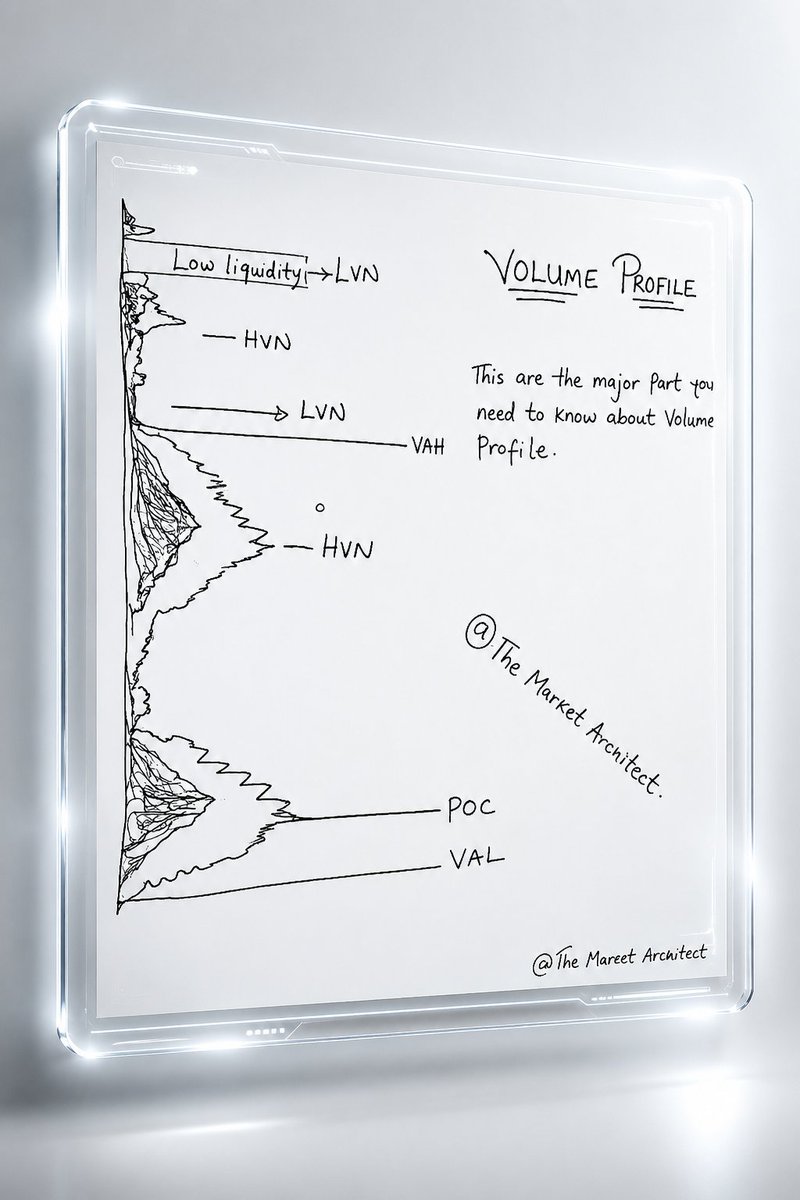 VOLUME PROFILE
Low liquidity → LVN
HVN
This are the major Part you
need to know about Volume
Profile.
LVN
VAH
HVN
@ The Market Architect.
POC
VAL
@The Mareet Architect